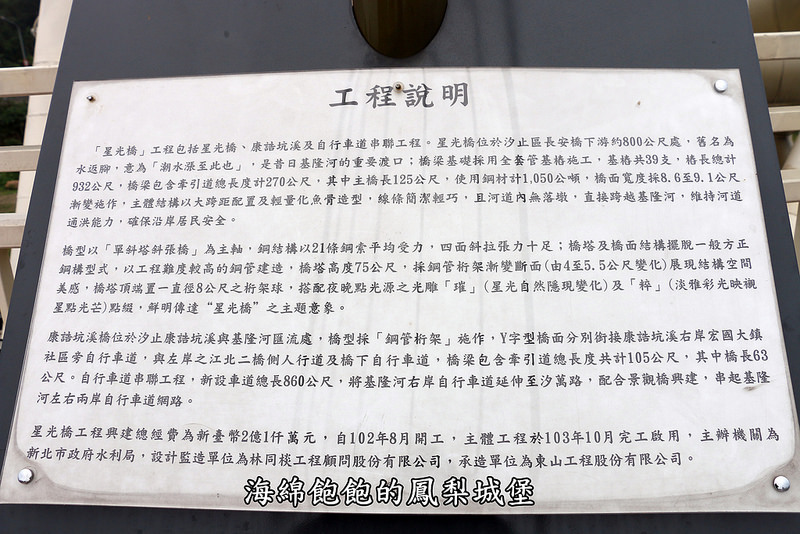 工程說明
「星光橋」工程包括星光橋、康誥坑溪及自行車道串聯工程。星光橋位於汐止區長安橋下游約800公尺處，舊名為
水返腳，意為「潮水漲至此也」，是昔日基隆河的重要渡口；橋梁基礎採用全套管基樁施工，基樁共39支，樁長總計
932公尺，橋梁包含牽引道總長度計270公尺，其中主橋長125公尺，使用鋼材計1,050公噸，橋面寬度採8.6至9.1公尺
漸變施作，主體結構以大跨距配置及輕量化魚骨造型，線條簡潔輕巧，且河道內無落墩，直接跨越基隆河，維持河道
通洪能力，確保沿岸居民安全。
橋型以「單斜塔斜張橋」為主軸，鋼結構以21條鋼索平均受力，四面斜拉張力十足；橋塔及橋面結構擺脫一般方正
鋼構型式，以工程難度較高的鋼管建造，橋塔高度75公尺，採鋼管桁架漸變斷面(由4至5.5公尺變化)展現結構空間
美感，橋塔頂端置一直徑8公尺之桁架球，搭配夜晚點光源之光雕「璀」(星光自然隱現變化)及「粹」(淡雅彩光映襯
星點光芒)點綴，鮮明傳達“星光橋”之主題意象。
康誥坑溪橋位於汐止康誥坑溪與基隆河區流處，橋型採「鋼管桁架」施作，Y字型橋面分別銜接康誥坑溪右岸宏國大鎮
社區旁自行車道，與左岸之江北二橋側人行道及橋下自行車道，橋梁包含牽引道總長度共計105公尺，其中橋長63
公尺。自行車道串聯工程，新設車道總長860公尺，將基隆河右岸自行車道延伸至汐萬路，配合景觀橋興建，串起基隆
河左右兩岸自行車道網路。
星光橋工程興建總經費為新臺幣2億1仟萬元，自102年8月開工，主體工程於103年10月完工啟用，主辦機關為
新北市政府水利局，設計監造單位為林同棪工程顧問股份有限公司，承造單位為東山工程股份有限公司。
海綿飽飽的鳳梨城堡